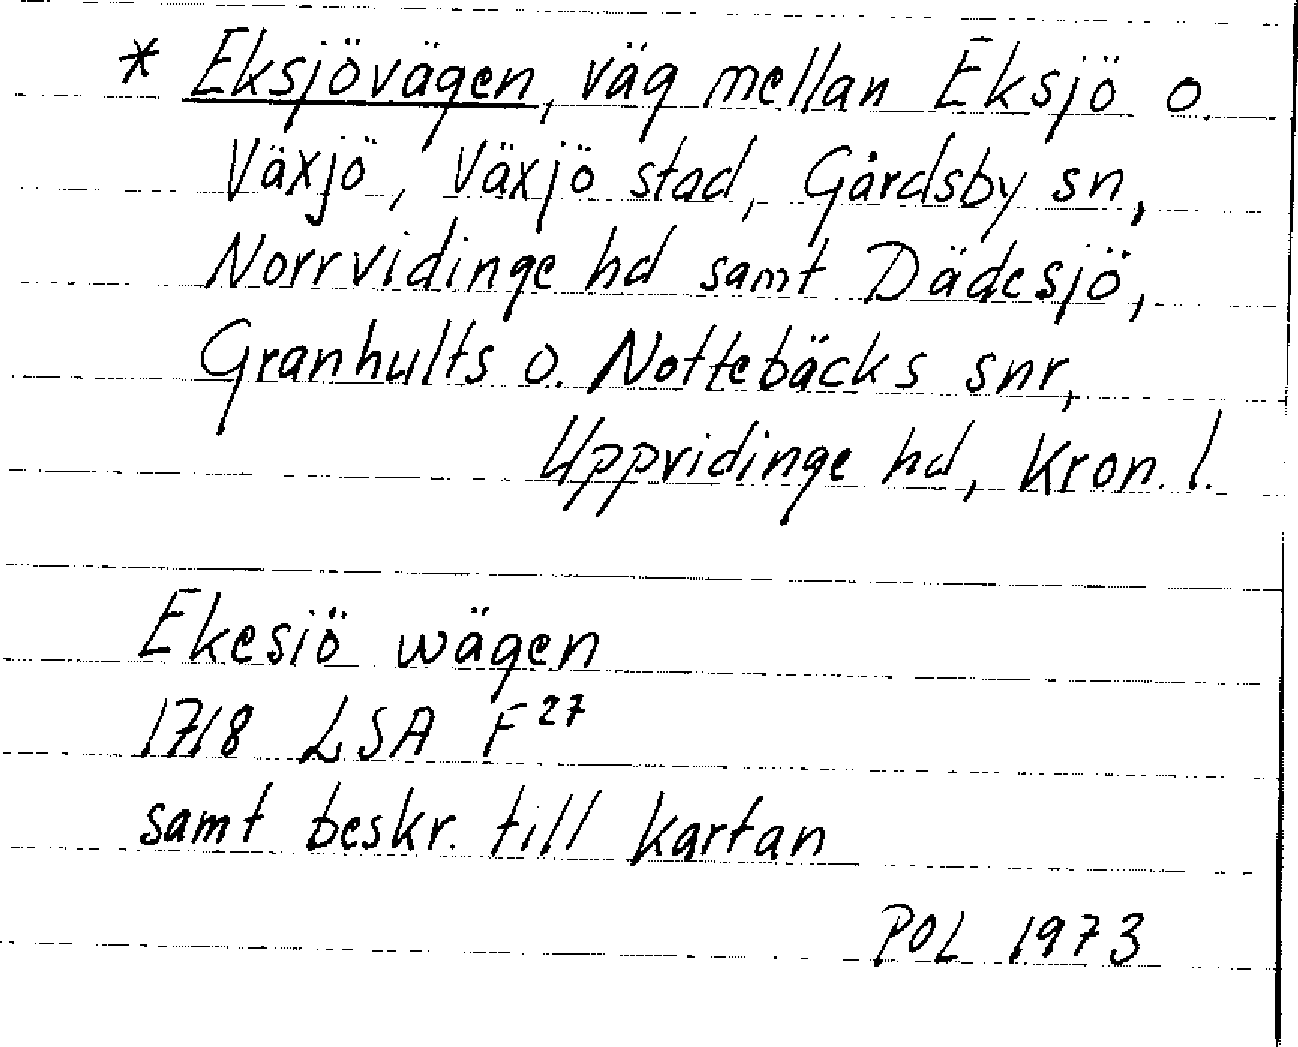 * Eksjövägen, väg mellan Eksjö o.
Växjö, Växjö stad, Gårdsby sn,
Norrvidinge hd samt Dädesjö,
Granhults o. Nottebäcks snr,
Uppvidinge hd, Kron. l.
Ekesiö wägen
1718 LSA F 27
samt beskr. till kartan
POL 1973